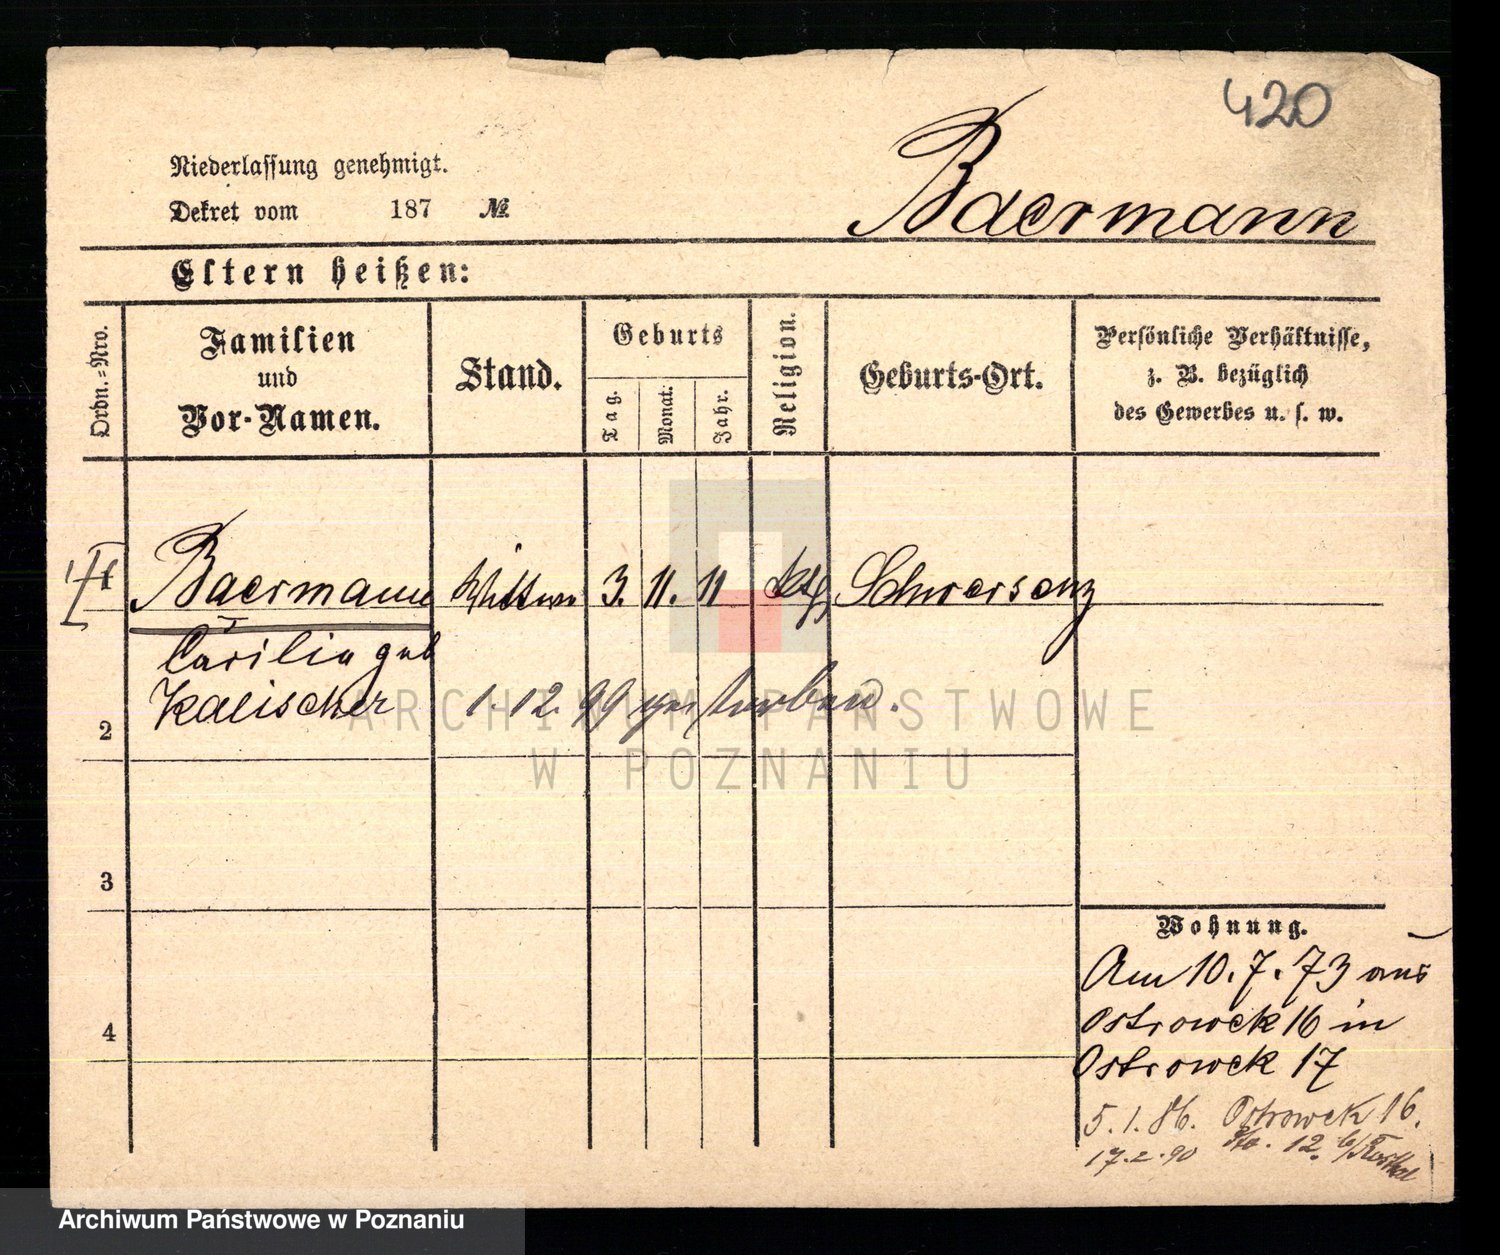 420
Niederlassung genehmigt.
Dekret vom 187 №
Baermann
Eltern heißen:
Ordn.-Nro.
Familien
und
Vor-Namen.
Stand.
Geburts
Tag.
Monat.
Jahr.
Religion.
Geburts-Ort.
Persönliche Verhältnisse,
z. B. bezüglich
des Gewerbes u. s. w.
Baermann Wittwe 3. 11. 11 Schwersenz
Cäcilie geb
Kalischer 1. 12. 99 gestorben.
2
3
4
Wohnung.
Am 10. 7. 73 aus
Ostrowek 16 in
Ostrowek 17
5. 1. 86. Ostrowek 16.
17. 2. 90 12.
ARCHIWUM PAŃSTWOWE
W POZNANIU
Archiwum Państwowe w Poznaniu